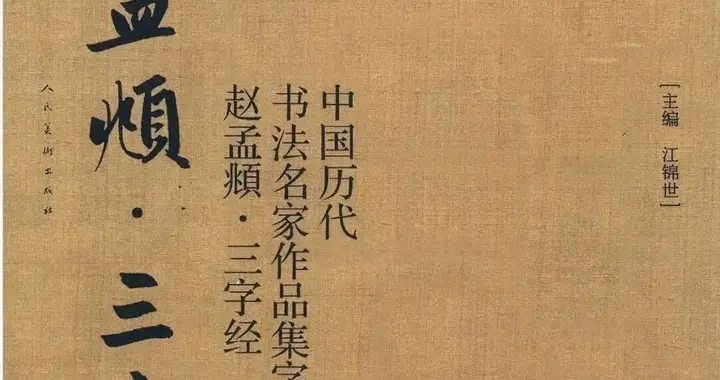 [主编 江锦世]
中国历代
书法名家作品集字
赵孟頫·三字经
孟頫·三
人民美术出版社